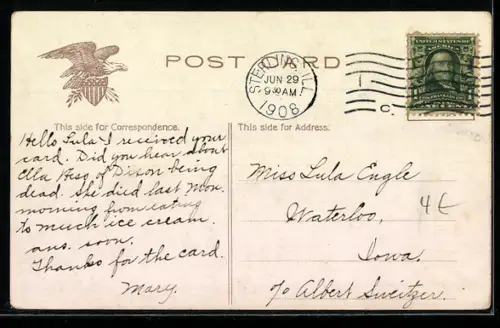 POST CARD
STERLING, ILL.
JUN 29
9 30 AM
1908
1
C.
UNITED STATES OF AMERICA
This side for Correspondence.
This side for Address.
Hello Lula I received your
card. Did you hear about
Ella Hess of Dixon being
dead. She died last Mon.
morning from eating
to much ice cream.
ans. soon.
Thanks for the card.
Mary.
Miss Lula Engle
Waterloo,
Iowa.
c/o Albert Sweitzer.
4t